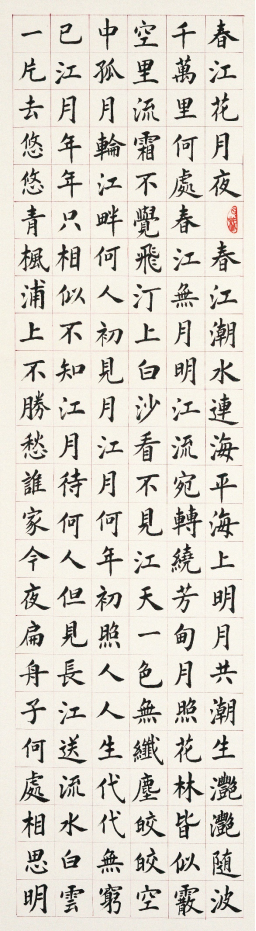 春江花月夜 春江潮水連海平海上明月共潮生灩灩随波
千萬里何處春江無月明江流宛轉繞芳甸月照花林皆似霰
空里流霜不覺飛汀上白沙看不見江天一色無纖塵皎皎空
中孤月輪江畔何人初見月江月何年初照人人生代代無窮
已江月年年只相似不知江月待何人但見長江送流水白雲
一片去悠悠青楓浦上不勝愁誰家今夜扁舟子何處相思明